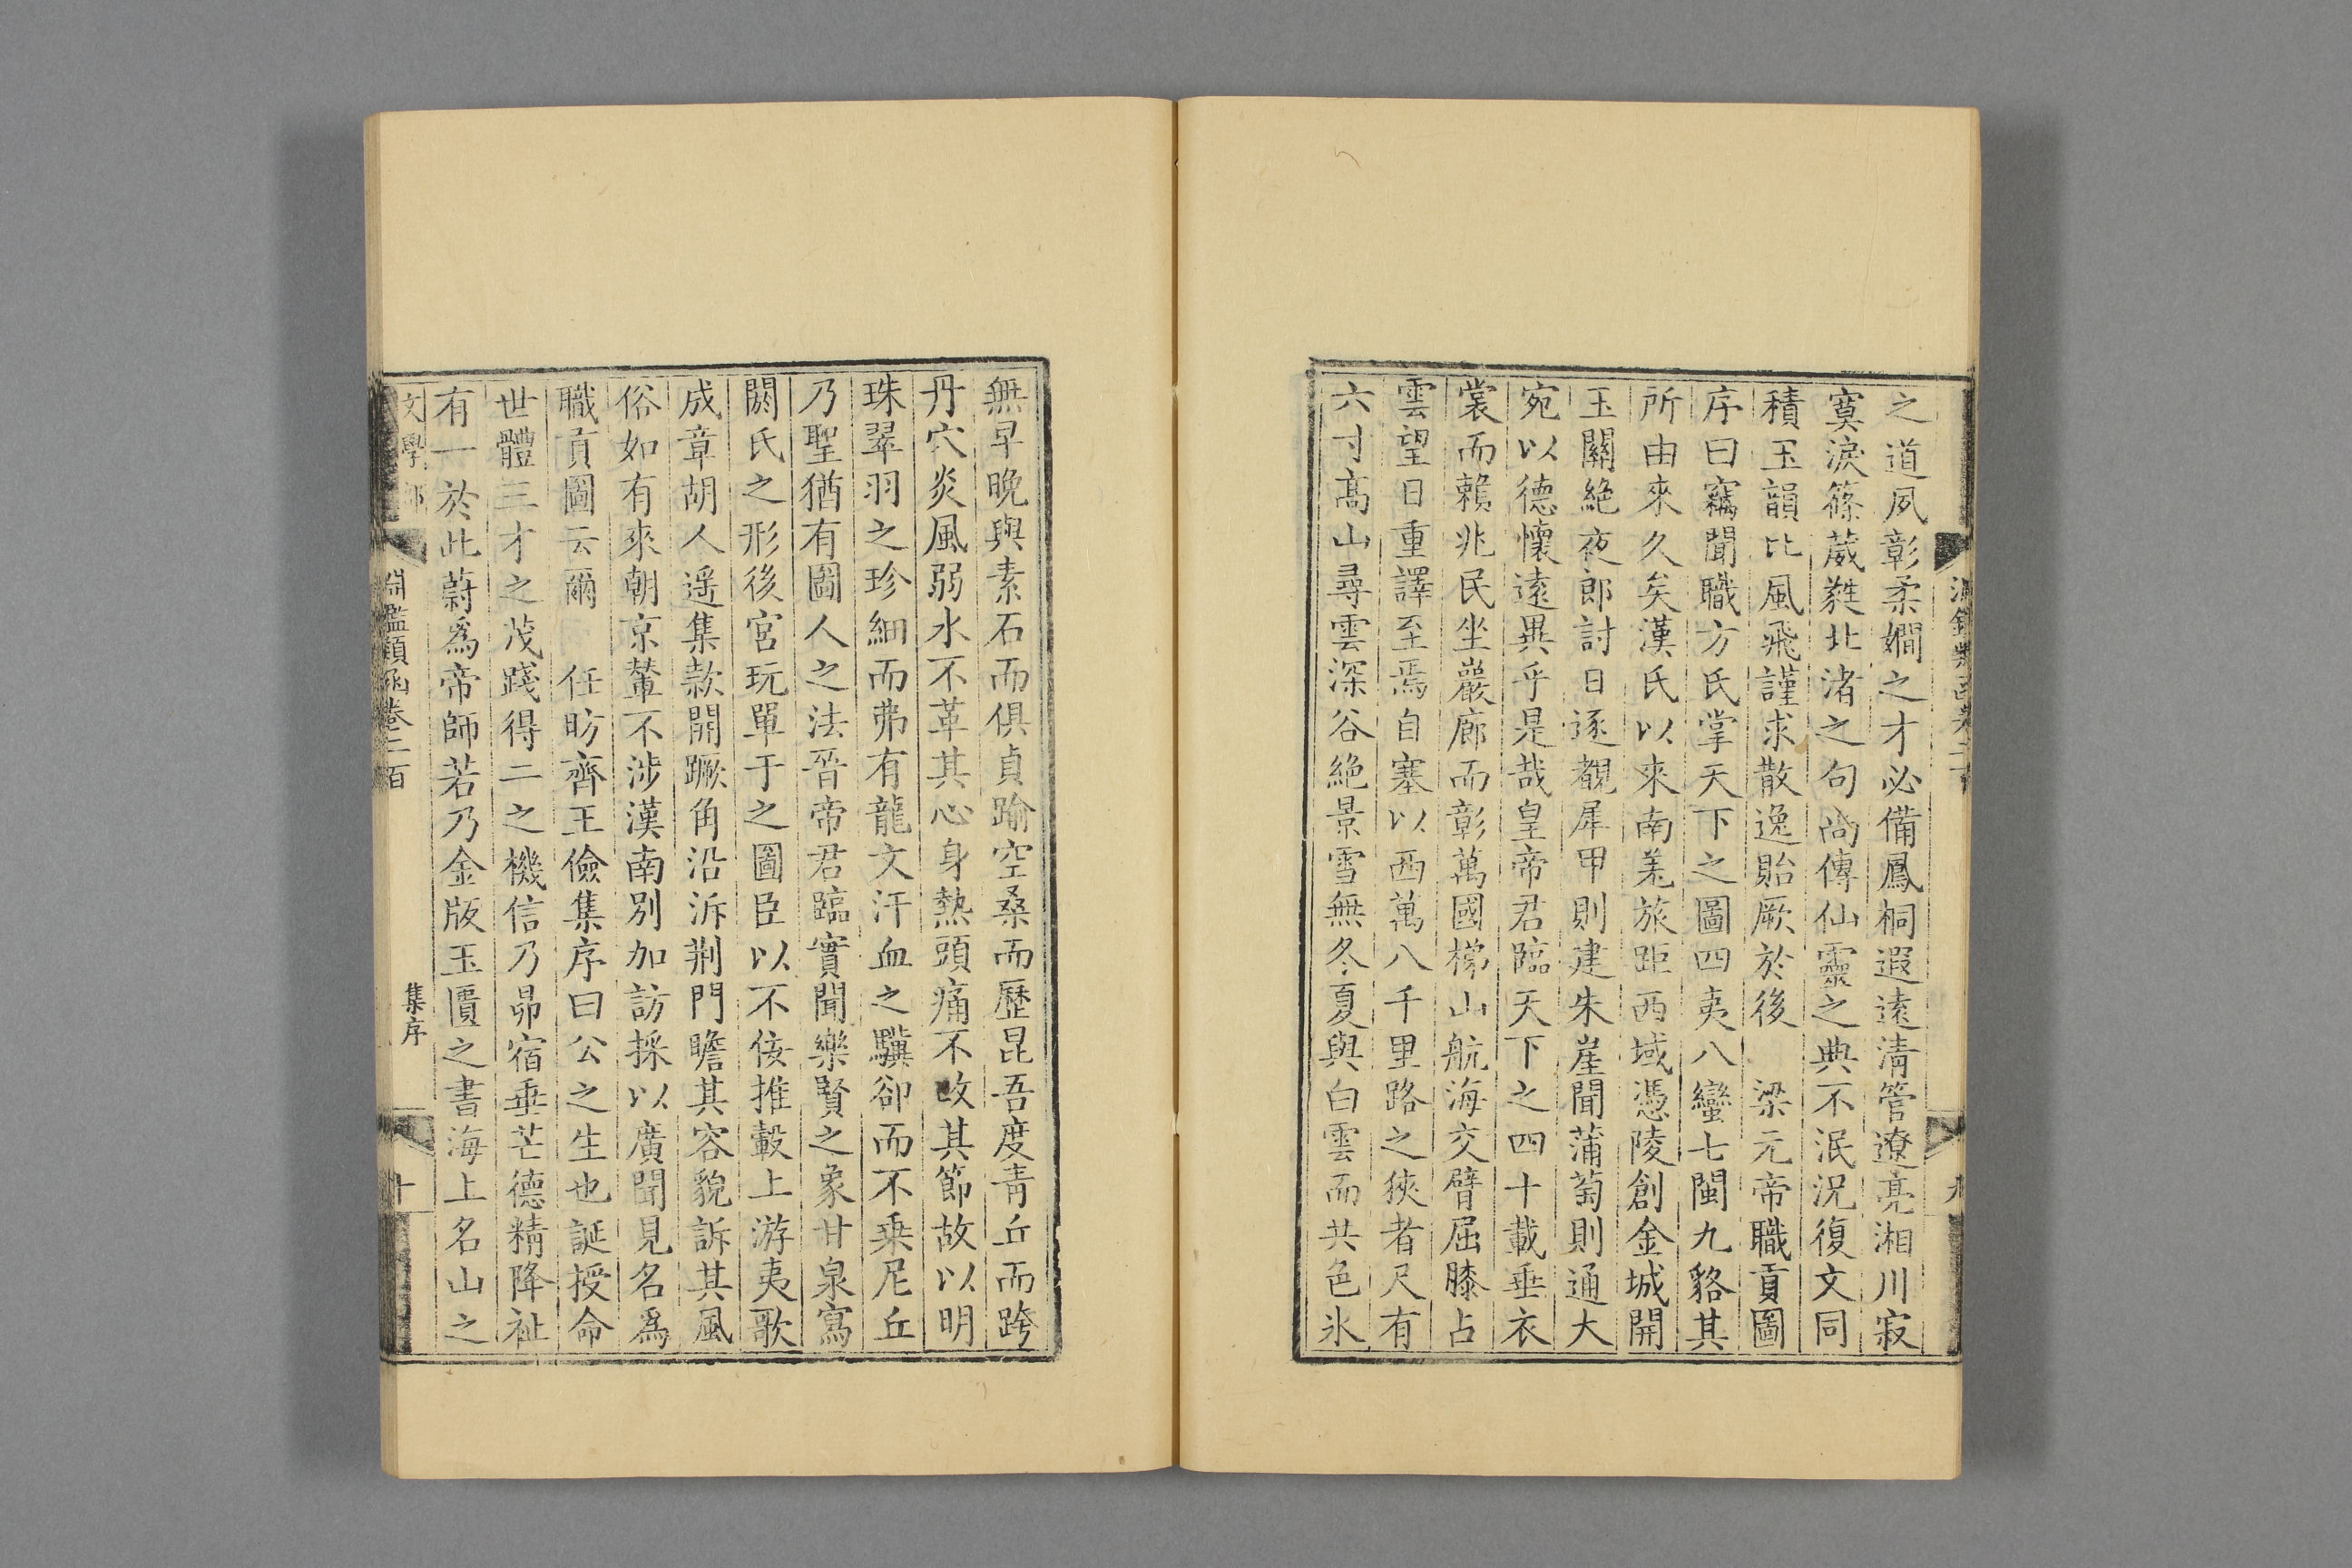 之道夙彰柔嫺之才必備鳳桐遐遠淸管遼亮湘川寂
寞淚篠葳蕤北渚之句尚傳仙靈之典不泯況復文同
積玉韻比風飛謹求散逸貽厥於後　梁元帝職貢圖
序曰竊聞職方氏掌天下之圖四夷八蠻七閩九貉其
所由來久矣漢氏以來南羌旅距西域憑陵創金城開
玉關絶夜郎討日逐覩犀甲則建朱崖聞蒲萄則通大
宛以德懷遠異乎是哉皇帝君臨天下之四十載垂衣
裳而賴兆民坐巖廊而彰萬國梯山航海交臂屈膝占
雲望日重譯至焉自塞以西萬八千里路之狹者尺有
六寸高山尋雲深谷絶景雪無冬夏與白雲而共色氷
無早晚與素石而俱貞踰空桑而歷昆吾度靑丘而跨
丹穴炎風弱水不革其心身熱頭痛不改其節故以明
珠翠羽之珍細而弗有龍文汗血之驥卻而不乗尼丘
乃聖猶有圖人之法晉帝君臨實聞樂賢之象甘泉寫
閼氏之形後宮玩單于之圖臣以不佞推轂上游夷歌
成章胡人遥集款開蹶角沿泝荆門瞻其容貌訴其風
俗如有來朝京輦不涉漢南別加訪採以廣聞見名爲
職貢圖云爾　任昉齊王儉集序曰公之生也誕授命
世體三才之茂踐得二之機信乃昴宿垂芒德精降祉
有一於此蔚爲帝師若乃金版玉匱之書海上名山之
文學部
淵鑑類函卷二百
集序
十